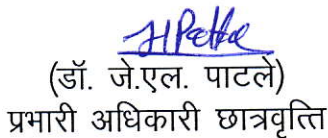 (डॉ. जे.एल. पाटले)
प्रभारी अधिकारी छात्रवृत्ति